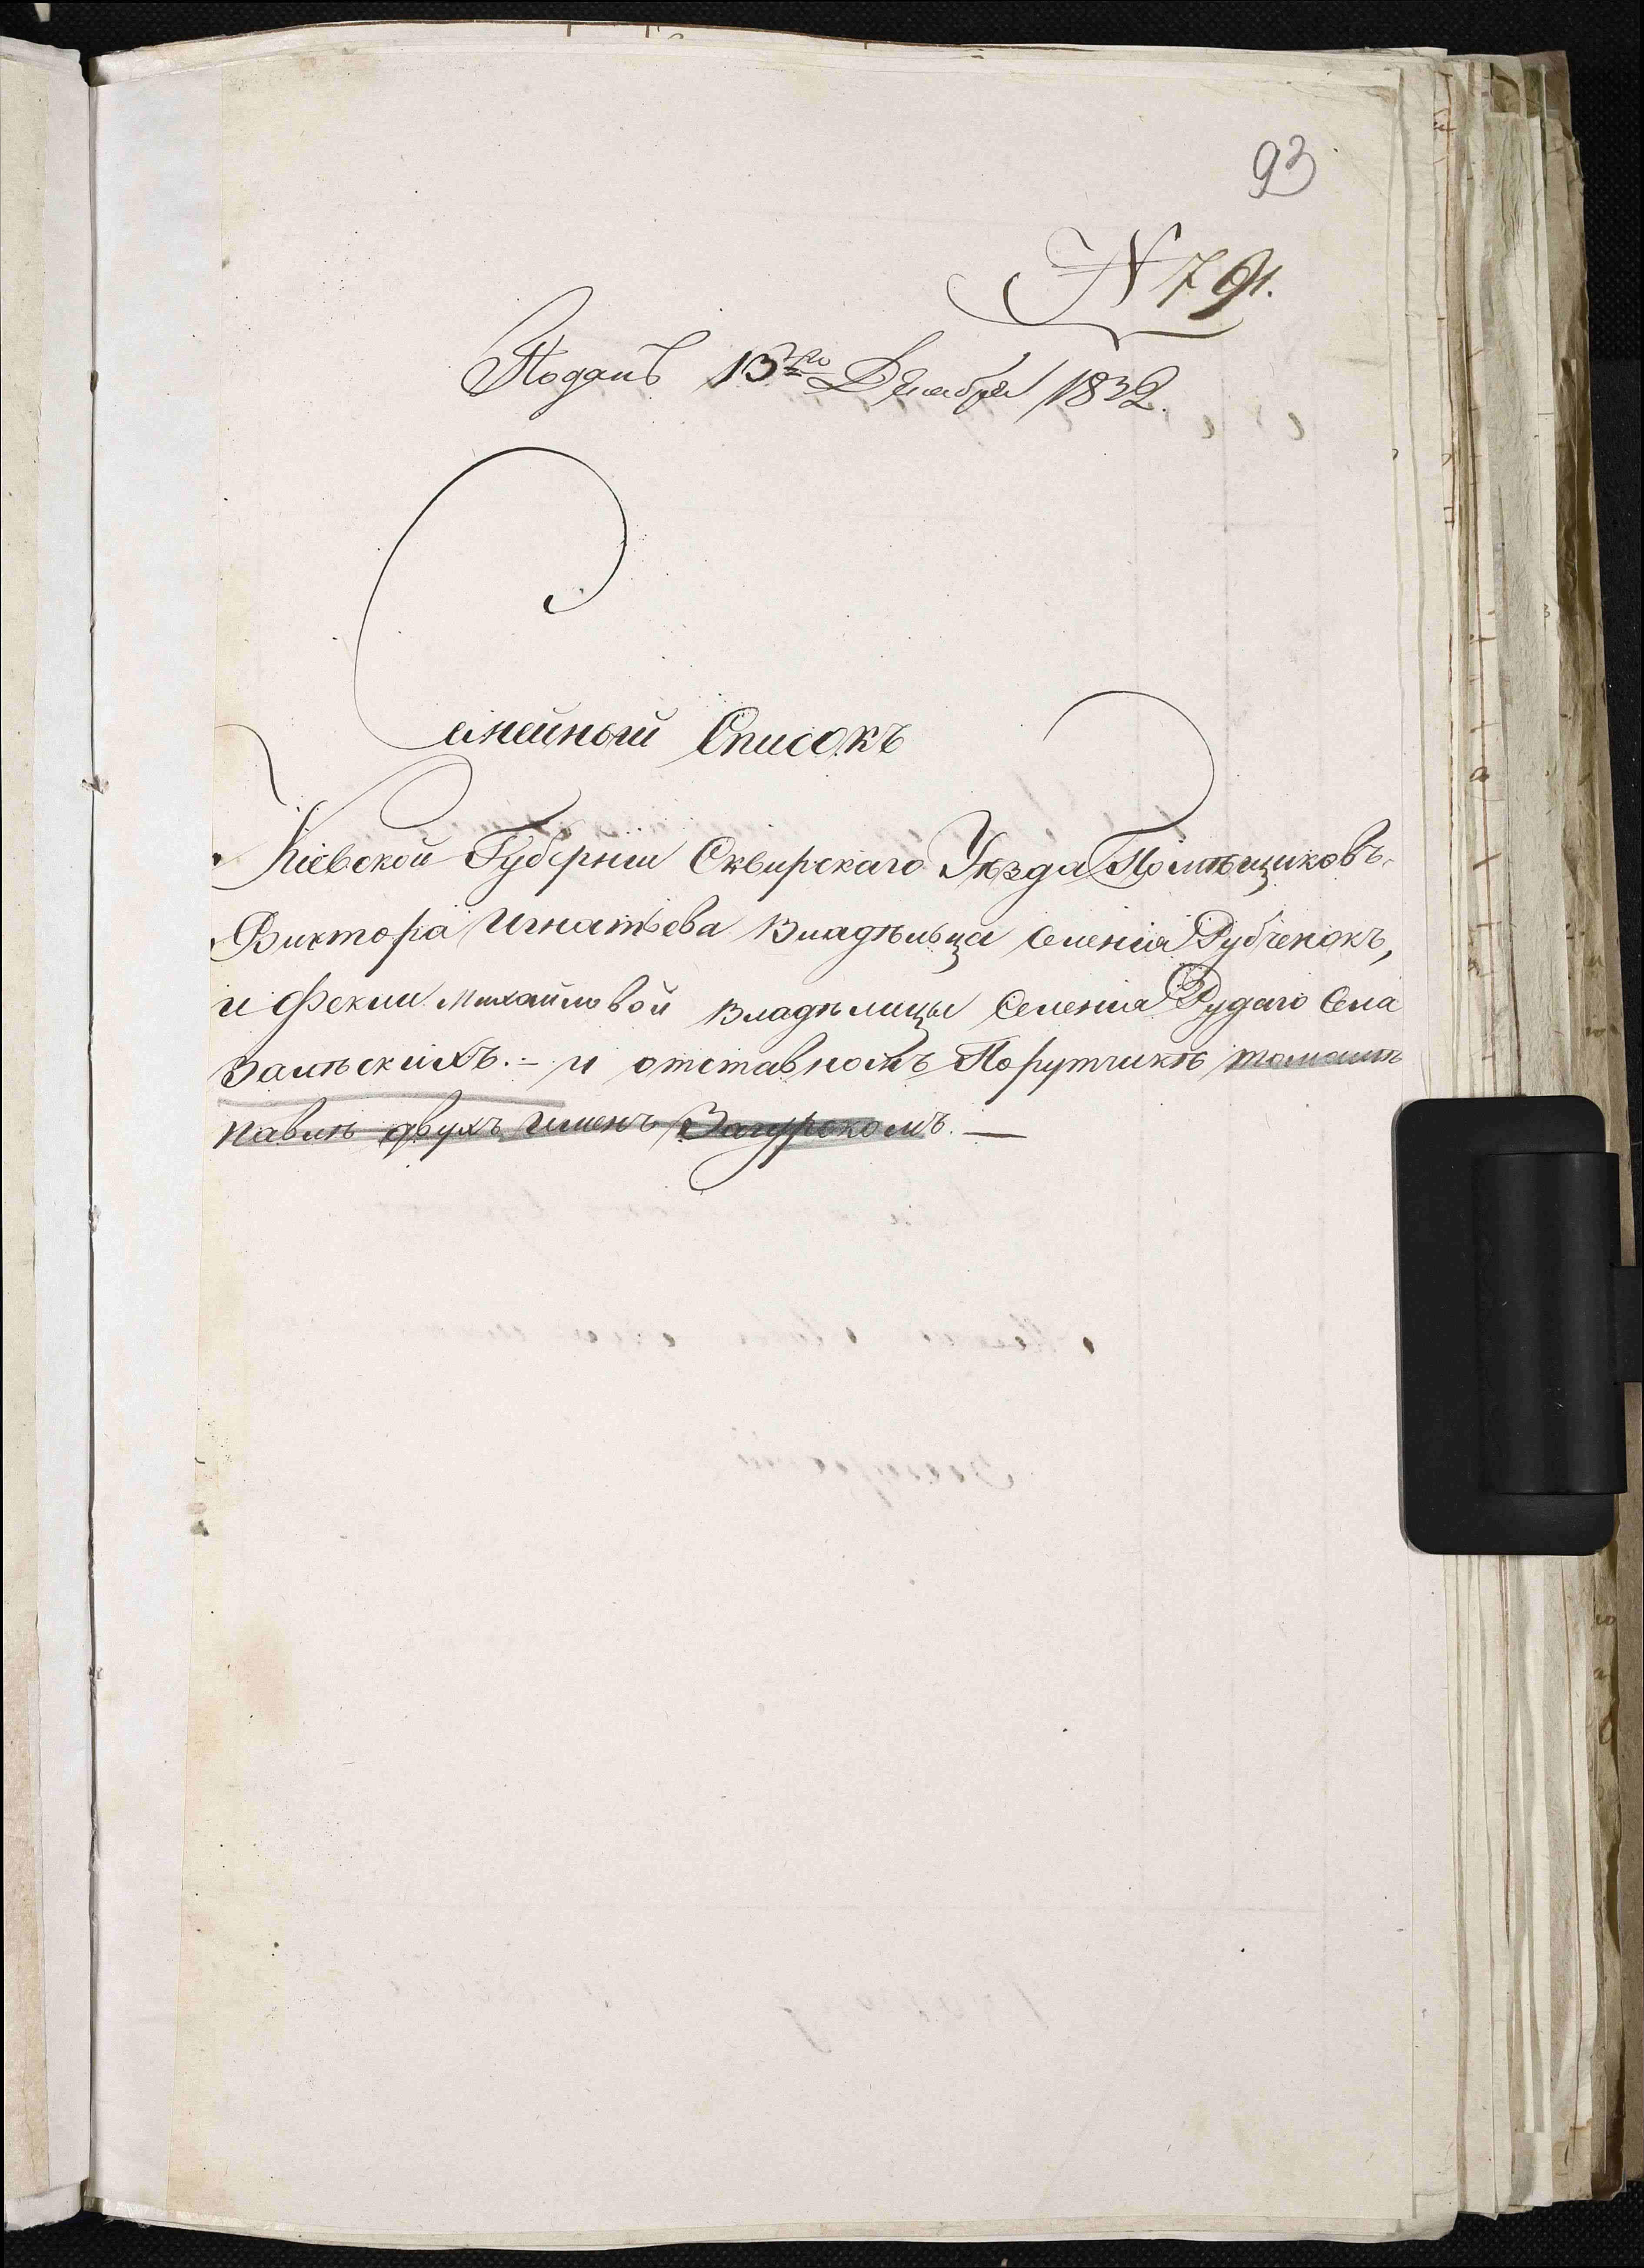 93
N 791.
Поданъ 13го Декабря 1832.
Семейный Списокъ
Кіевской Губерніи Сквирскаго Уѣзда Помѣщиковъ
Виктора Игнатьева владѣльца селенія Рубченокъ,
и Феклы Михайловой владѣлицы Селенія Рудаго Села
Залѣскихъ. - и отставномъ Порутчикѣ томашѣ
павлѣ двухъ именъ Загурскомъ. —